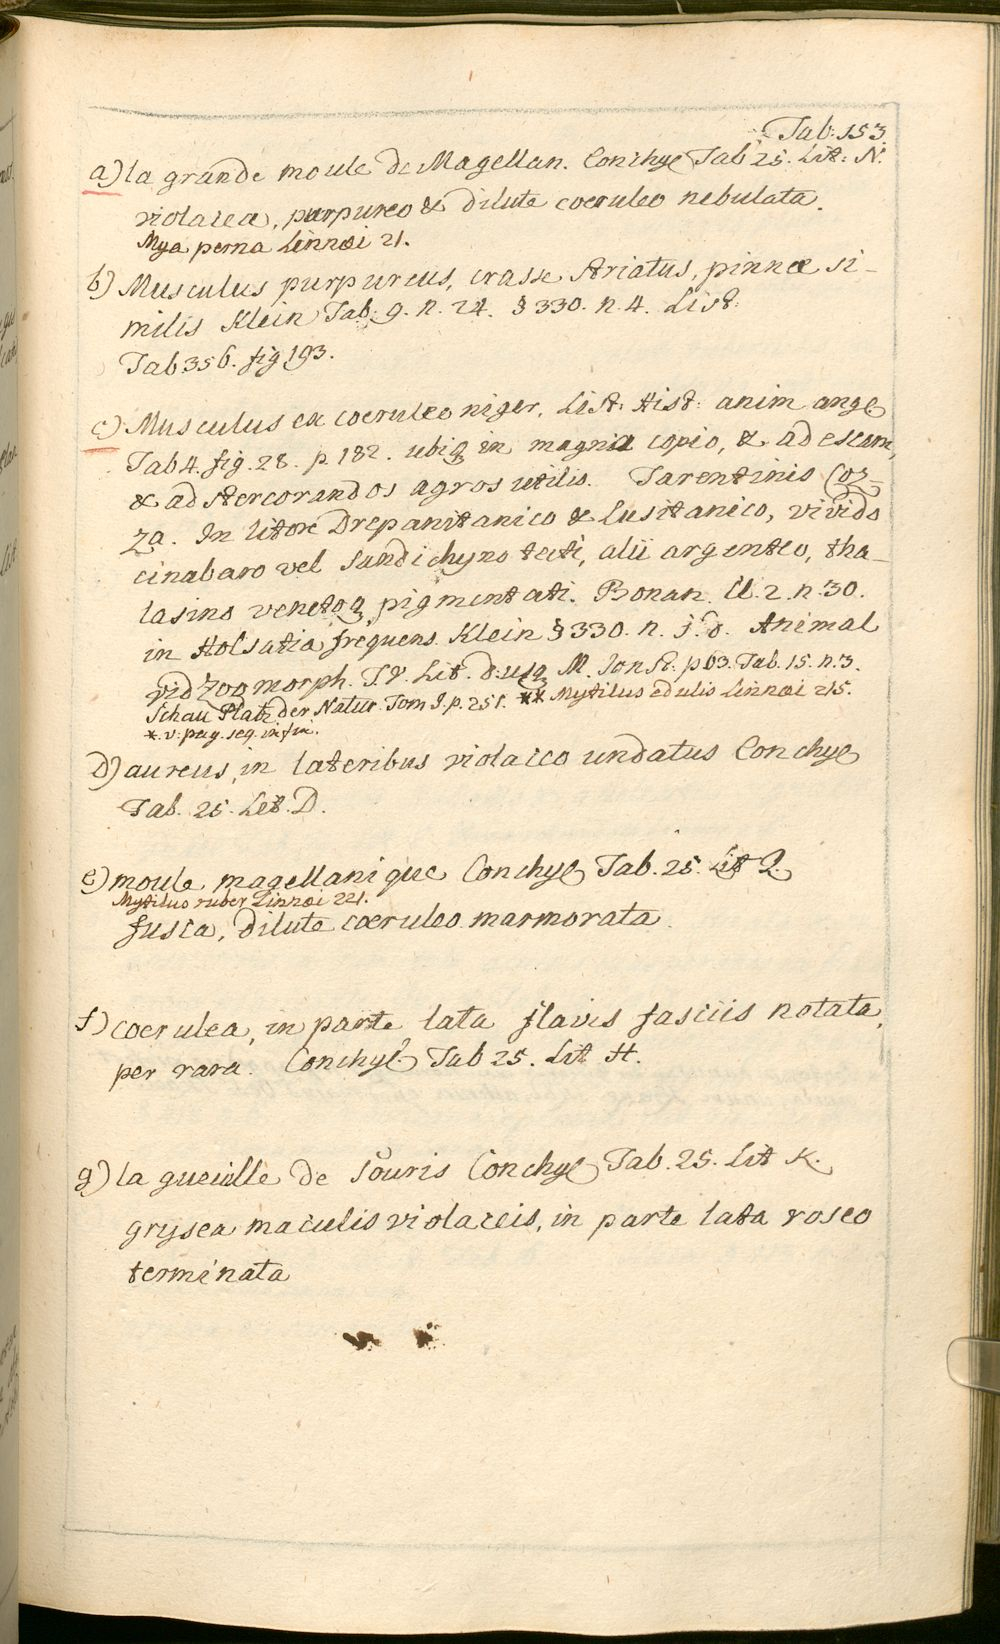 Tab: 153.
a) la grande moule de Magellan. Conchyl Tab 25. Lit: N.
violacea, purpureo & dilute coeruleo nebulata.
Mya perna Linnæi 21.
b) Musculus purpureus, crasse striatus, pinnæ si-
milis Klein Tab: 9. n. 24. § 330. n. 4. List:
Tab 356. fig 193.
c) Musculus ex coeruleo niger. List: Hist: anim angl
Tab 4. fig. 28. p. 182. ubiq in magna copio, & ad escam,
& ad stercorandos agros utilis. Tarentinis Coz-
za. In litore Drepanitanico & Lusitanico, vivido
cinabaro vel Sandichyno tati, alii argenteo, tha-
lasino venetoq pigmentati. Bonan. Cl. 2. n. 30.
in Holsatia frequens. Klein § 330. n. Animal
vid Zoomorph. Lit. M. Ionst: p 63. Tab. 15. n. 3.
Schau Platz der Natur. Tom I. p. 251. ** Mytilus edulis Linnæi 215.
*. v: pag. seq. infin.
d) aureus, in lateribus violaceo undatus Conchyl
Tab. 25. Let. D.
e) moule magellanique Conchyl Tab. 25. Lit Q.
Mytilus ruber Linnæi 221.
fusca, dilute cæruleo marmorata.
f) coerulea, in parte lata flavis fasciis notata,
per rara. Conchyl. Tab 25. Lit H.
g) la gueulle de Souris Conchyl Tab. 25. Lit K.
grysea maculis violaceis, in parte lata roseo
terminata